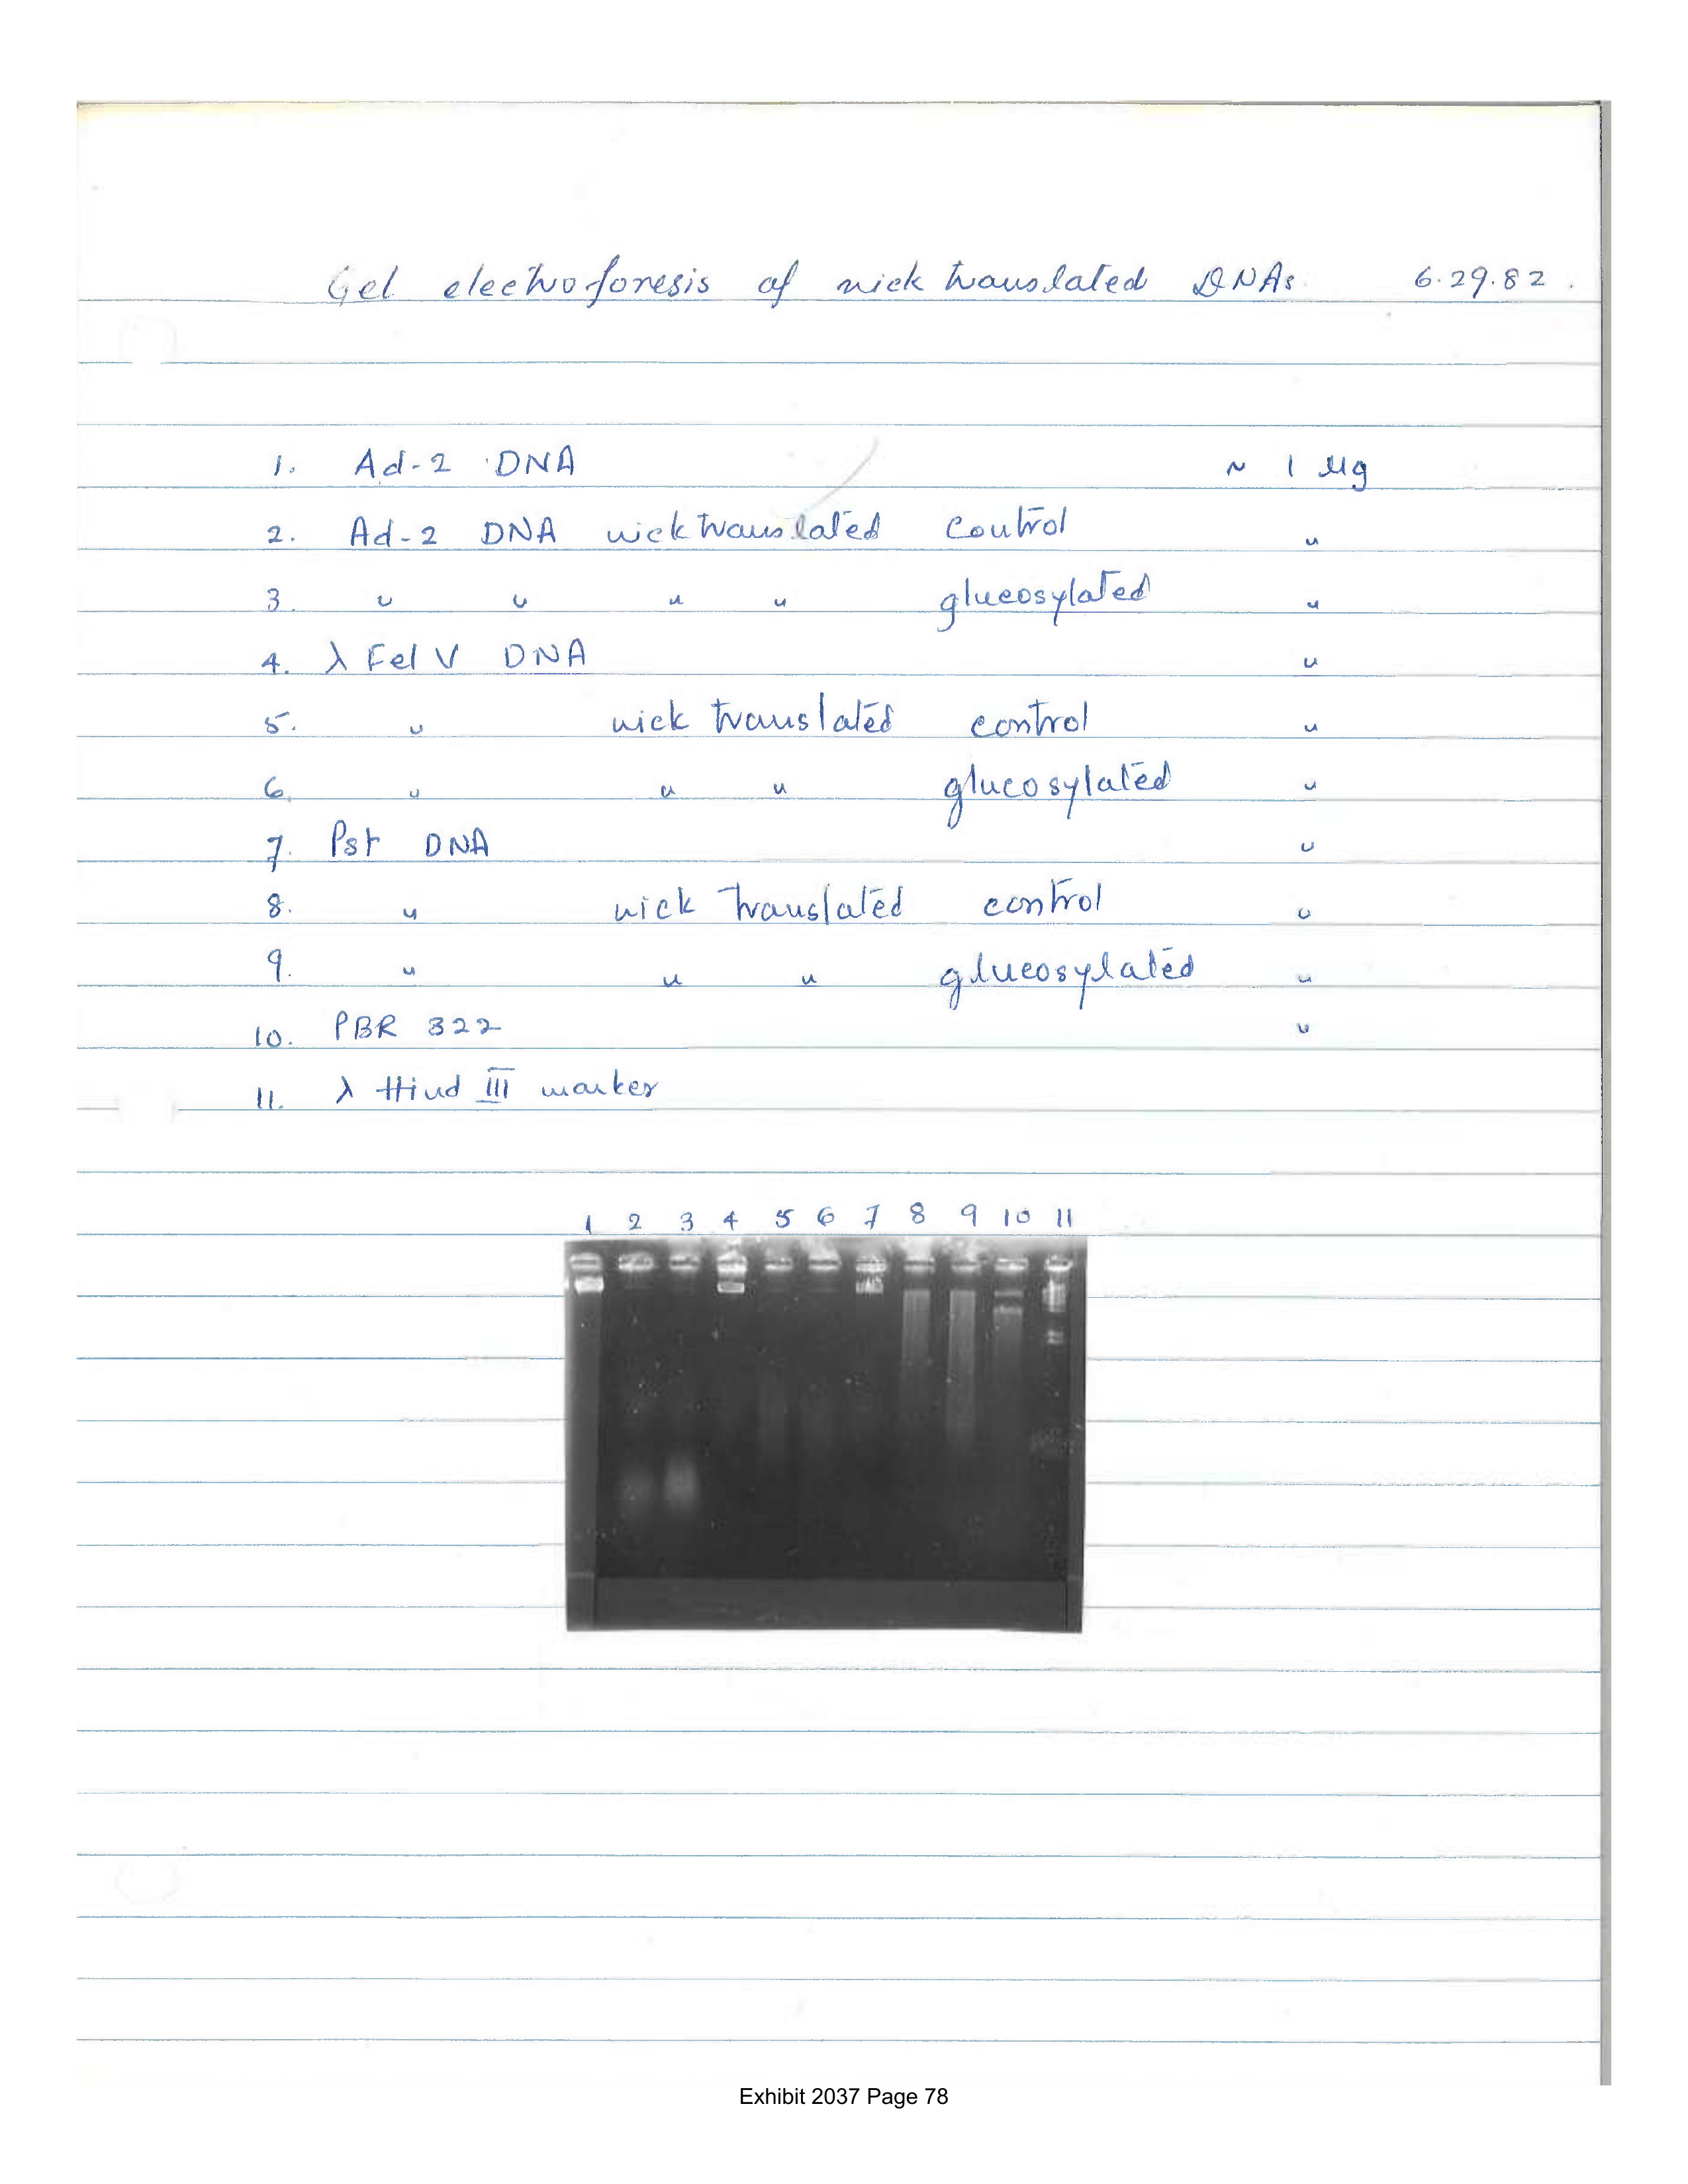 Gel electroforesis of nick translated DNAs. 6.29.82.
1. Ad-2 DNA ~ 1 µg
2. Ad-2 DNA nick translated control "
3. " " " " glucosylated "
4. λ Fel V DNA "
5. " nick translated control "
6. " " " glucosylated "
7. Pst DNA "
8. " nick translated control "
9. " " " glucosylated "
10. PBR 322 "
11. λ Hind III marker
1 2 3 4 5 6 7 8 9 10 11
Exhibit 2037 Page 78